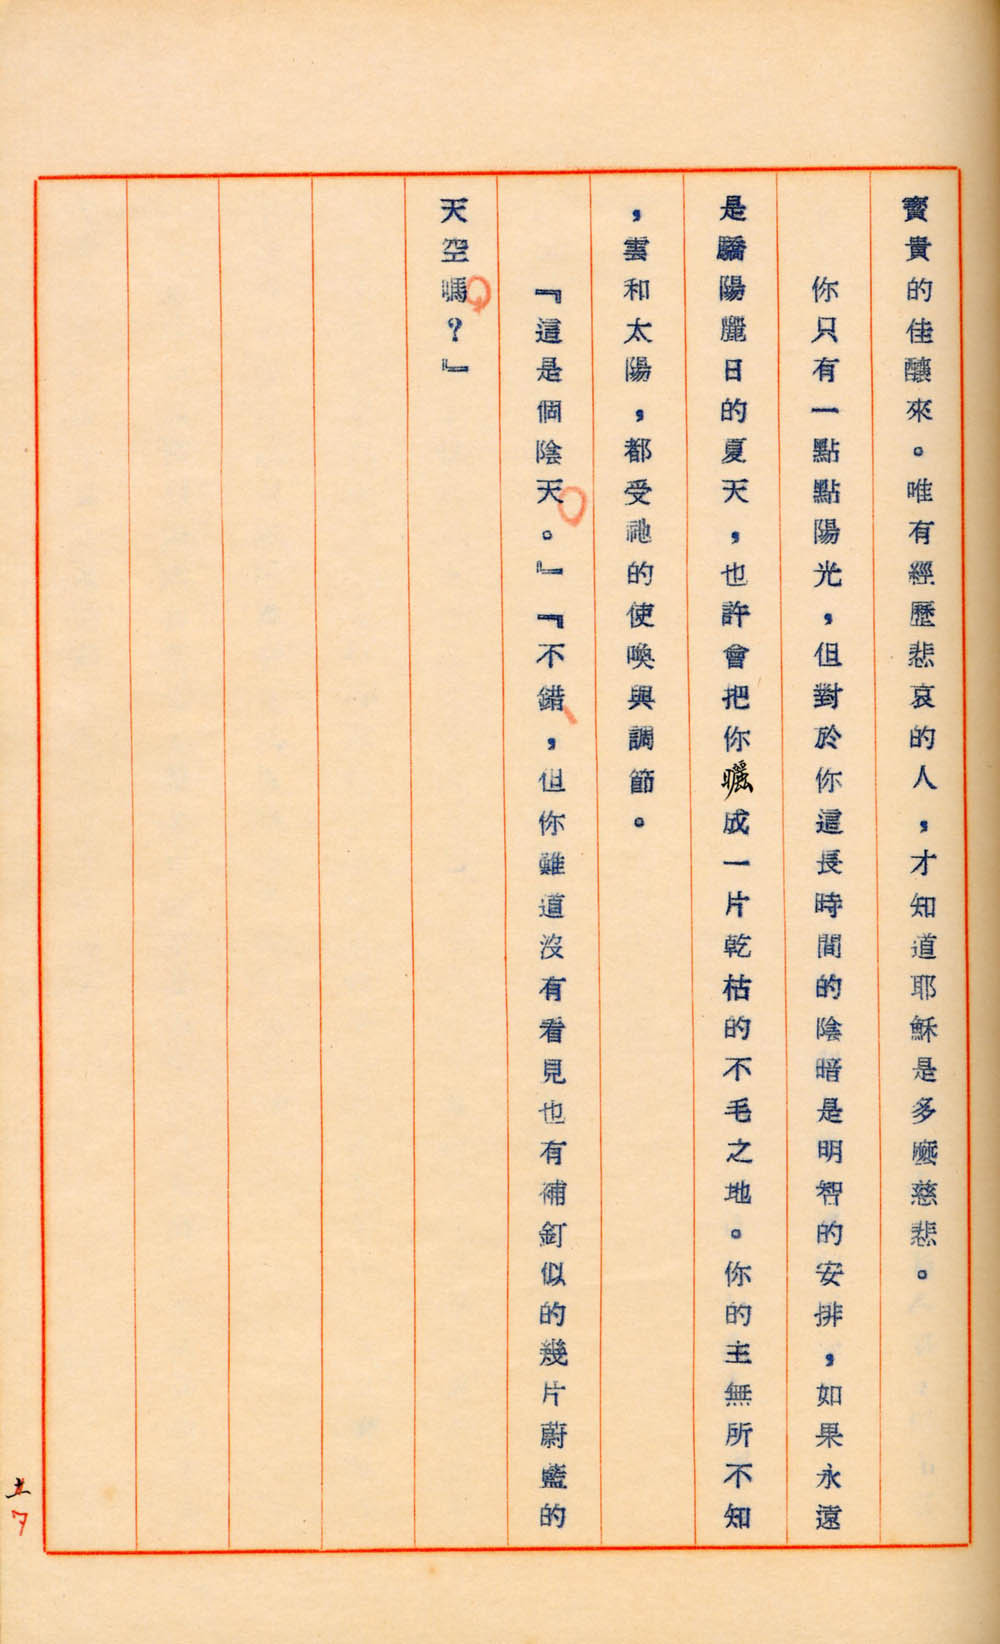 寶貴的佳釀來。唯有經歷悲哀的人，才知道耶穌是多麼慈悲。
你只有一點點陽光，但對於你這長時間的陰暗是明智的安排，如果永遠
是驕陽麗日的夏天，也許會把你曬成一片乾枯的不毛之地。你的主無所不知
，雲和太陽，都受祂的使喚與調節。
『這是個陰天。』『不錯，但你難道沒有看見也有補釘似的幾片蔚藍的
天空嗎？』
7